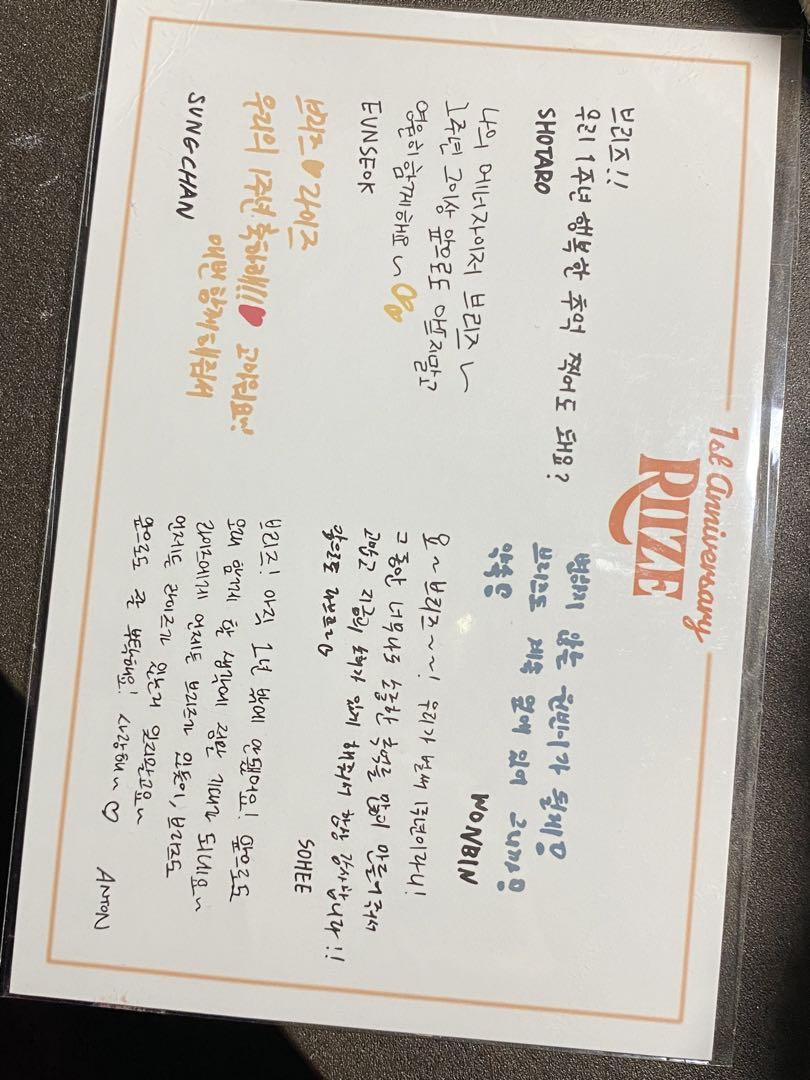 1st anniversary
RIIZE
브리즈!!
우리 1주년 행복한 추억 찍어도 돼요?
SHOTARO
나의 에너자이저 브리즈~
1주년 그이상 앞으로도 아프지말고
영원히 함께해요~
EUNSEOK
브리즈♥라이즈
우리의 1주년 축하해!!♥ 고마워요!!
SUNGCHAN
변하지 않는 원빈이가 될게
브리즈도 계속 옆에 있어
약속
WONBIN
요~브리즈~~! 우리가 벌써 1주년이라니!
그동안 너무나도 소중한 추억을 많이 만들어줘서
고맙고 지금의 해줘서 항상 감사합니다!!
앞으로
SOHEE
브리즈! 아직 1년 밖에 안됐어요! 앞으로도
오래 함께 할 생각에 정말 기대가 되네요~
라이즈에게 언제나 브리즈가 있듯이, 브리즈도
언제나 라이즈가 있는거 잊지말고요~
앞으로도 잘 부탁해요! 사랑해~♡
ANTON